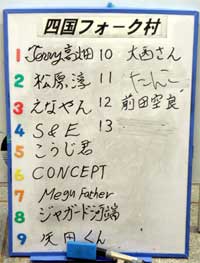 四国フォーク村
1 Jerry高畑 10 大西さん
2 松原淳 11 たんこ
3 えなやん 12 前田空良
4 S&E 13
5 こうじ君
6 CONCEPT
7 Megu Father
8 ジャガード河端
9 矢田くん